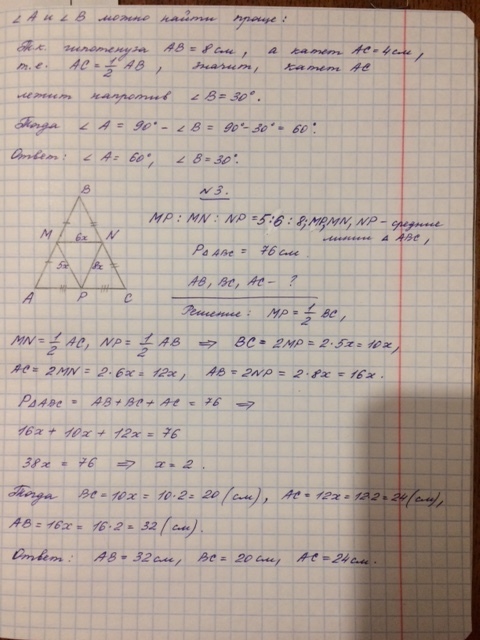 ∠A и ∠B можно найти проще:
Т.к. гипотенуза AB = 8 см, а катет AC = 4 см,
т.е. AC = 1/2 AB, значит, катет AC
лежит напротив ∠B = 30°.
Тогда ∠A = 90° - ∠B = 90° - 30° = 60°.
Ответ: ∠A = 60°, ∠B = 30°.
N3.
B
M 6x N
5x 8x
A P C
MP : MN : NP = 5 : 6 : 8; MP, MN, NP - средние
линии Δ ABC,
PΔABC = 76 см.
AB, BC, AC - ?
Решение: MP = 1/2 BC,
MN = 1/2 AC, NP = 1/2 AB ⇒ BC = 2MP = 2·5x = 10x,
AC = 2MN = 2·6x = 12x, AB = 2NP = 2·8x = 16x.
PΔABC = AB + BC + AC = 76 ⇒
16x + 10x + 12x = 76
38x = 76 ⇒ x = 2.
Тогда BC = 10x = 10·2 = 20 (см), AC = 12x = 12·2 = 24 (см),
AB = 16x = 16·2 = 32 (см).
Ответ: AB = 32 см, BC = 20 см, AC = 24 см.